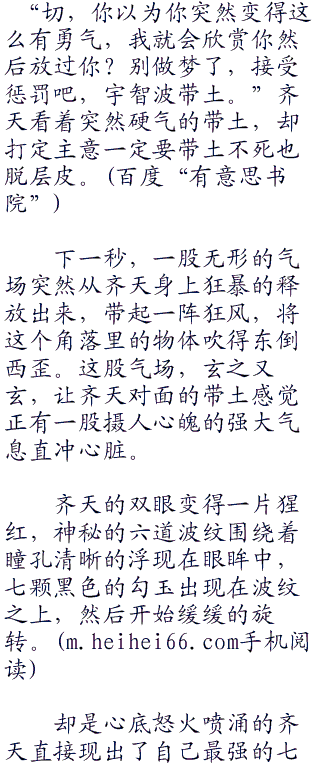 “切，你以为你突然变得这
么有勇气，我就会欣赏你然
后放过你？别做梦了，接受
惩罚吧，宇智波带土。”齐
天看着突然硬气的带土，却
打定主意一定要带土不死也
脱层皮。(百度“有意思书
院”)
下一秒，一股无形的气
场突然从齐天身上狂暴的释
放出来，带起一阵狂风，将
这个角落里的物体吹得东倒
西歪。这股气场，玄之又
玄，让齐天对面的带土感觉
正有一股摄人心魄的强大气
息直冲心脏。
齐天的双眼变得一片猩
红，神秘的六道波纹围绕着
瞳孔清晰的浮现在眼眸中，
七颗黑色的勾玉出现在波纹
之上，然后开始缓缓的旋
转。(m.heihei66.com手机阅
读)
却是心底怒火喷涌的齐
天直接现出了自己最强的七